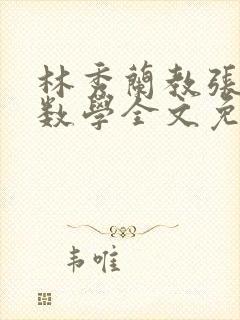 林秀蘭教張
数學全文免
韦唯